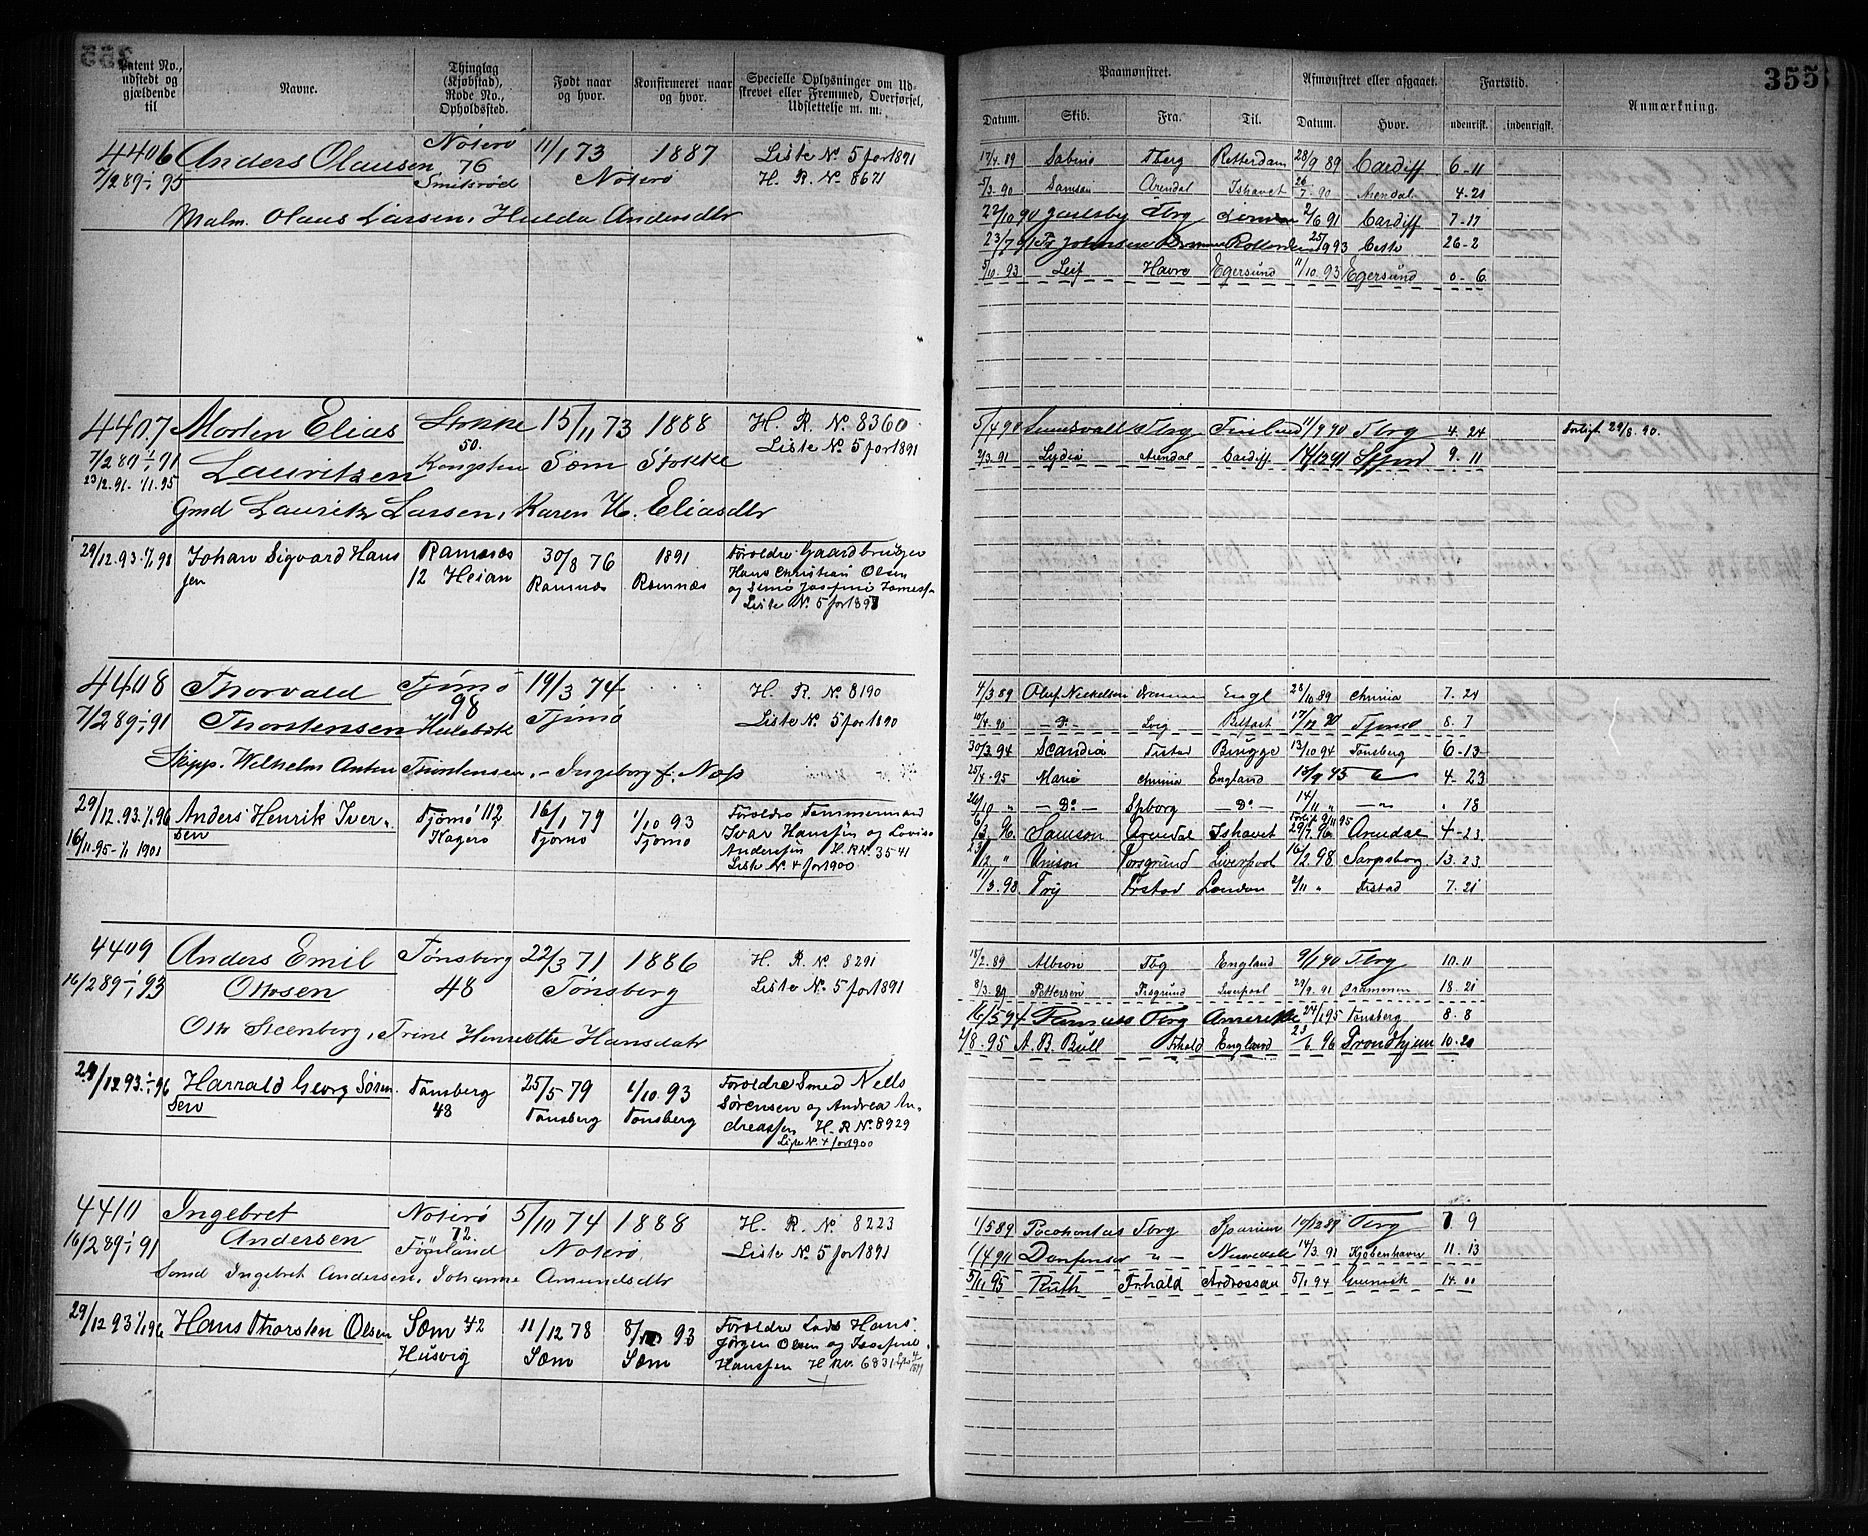 355
Patent No., udstedt og gjældende til
Navne.
Thinglag (Kjøbstad), Rode No., Opholdssted.
Født naar og hvor.
Konfirmeret naar og hvor.
Specielle Oplysninger om Udskrevet eller Fremmed, Overførsel, Udslettelse m. m.
Paamønstret.
Afmønstret eller afgaaet.
Fartstid.
Anmærkning.
Datum. Skib. Fra. Til. Datum. Hvor. udenrigsk. indenrigsk.
4406 Anders Olausen Nøterø 11/1 73 1887 Liste No. 5 for 1891
7/2 89 - 1/1 95 76 Smidsrød Nøterø H. R. No. 8671
Matr. Olaus Larsen, Hulda Andersdtr
17/4. 89 Sabino Tbrg Rotterdam 28/9 89 Cardiff 6-11
5/3. 90 Samson Arendal Ishavet 26/7. 90 Arendal 4-21
22/10 90 Jarlsby Tbrg London 2/6 91 Cardiff 7-17
23/7 91 Johnsen Rotterdam 25/9 93 Cette 26-2
5/10. 93 Leif Havre Egersund 11/10. 93 Egersund 0-6
4407 Morten Elias Stokke 15/11 73 1888 H. R. No. 8360
7/2 89 - 1/1 91 50. Liste No. 5 for 1891
23/12. 91. 1/1. 95 Lauritzen Kongsten Sæm Stokke
Gmd Lauritz Larsen, Karen H. Eliasdtr
5/4 90 Sundsvall Tbrg Finland 11/9 90 Tbrg 4. 24 Forligt 29/8. 90.
2/3. 91 Lydia Arendal Cardiff 14/12 91 Sfjord 9. 11
29/12. 93. 1/1 98 Johan Sigvard Hansen Ramnæs 30/8 76 1891 Forældre Gaardbruger
12 Heian Ramnæs Ramnæs Hans Christian Olsen
og Sinø Josefine
Liste No. 5 for 1897
4408 Thorvald Tjømø 19/3 74 H. R. No. 8190
7/2 89 - 1/1 91 Thorstensen 98 Hulebæk Tjømø Liste No. 5 for 1890
Skipp. Wilhelm Anton Thorstensen, Ingeborg f. Næss
4/3 89 Oluf Nickelsen Engl 28/10 89 Chrinia 7. 24
10/4. 90 -Do- Lvig Belfast 17/12 90 Tjømø 8. 7
30/3. 94 Scandia Frstad Brügge 13/10 94 Tønsberg 6-13
25/4-95 Marie Chrinia England 15/9 95 4-23
26/10 " -Do- Spborg -Do- 14/11 " -"- " 18
6/3. 96 Samson Arendal Ishavet 29/7. 96 Arendal 4-23
23/12 " Union Porsgrund Liverpool 16/2. 98 Sarpsborg 13. 23
17/3. 98 Try Frstad London 2/11 " Frstad 7. 21
29/12. 93. 1/1 96 Anders Henrik Iversen Tjømø 112 16/1 79 1/10 93 Forældre Tømmermand
16/11. 95 - 1/1 1901 Kagerø Tjømø Tjømø Ivar Hanssen og Lovise
Anderssen H. R. No. 3541
Liste No. 4 for 1900
4409 Anders Emil Tønsberg 22/3 71 1886 H. R. No. 8291
16/2 89 - 1/1 93 Ottosen 48 Tønsberg Liste No. 5 for 1891
Otto Steenberg, Trine Henrette Hansdatr
18/2. 89 Albion Tbg England 9/1 90 Tbrg 10. 11
8/3. 89 Pettersen Prsgrund Liverpool 29/9. 91 Drammen 18. 21
16/5 94 Tbrg Amerika 24/1 95 Tønsberg 8. 8
2/8. 95 A. B. Bull Frhald England 23/6. 96 Trondhjem 10. 20
29/12 93. 1/1 96 Harrald Georg Sørensen Tønsberg 25/5 79 1/10. 93 Forældre Smed Nells
48 Tønsberg Tønsberg Sørensen og Andrea An-
dreassen H. R No 8929
Liste No. 4 for 1900
4410 Ingebret Nøterø 5/10 74 1888 H. R. No. 8223
16/2 89 - 1/1 91 Andersen 72. Føynland Nøterø Liste No. 5 for 1891
Sømd Ingebret Andersen, Johanne Amundsdtr
1/5 89 Pocohontas Tbrg 10/12 89 Tbrg 7 9
1/4 90 -"- 14/3. 91 Kjøbenhavn 11. 13
5/11 95 Ruth Frhald Ardrossan 5/1 94 14. 00
29/12 93 1/1 96 Hans Thorsten Olsen Sæm 42 11/12 78 8/10 93 Forældre Lods Hans
Husvig Sæm Sæm Jørgen Olsen og Josefine
Hanssen H R No. 6831